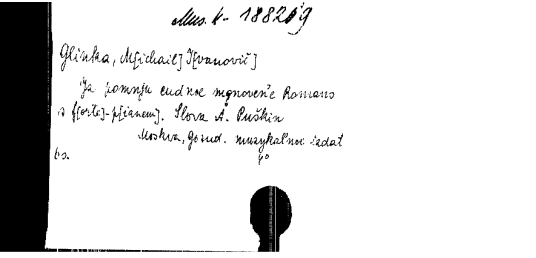 Mus. k- 18829
Glinka, M[ichail] I[vanovič]
Ja pomnju čudnoe mgnoven'e Romans
s f[orte]-p[ianem]. Slova A. Puškin
Moskva, Gosud. muzykal'noe izdat
4°